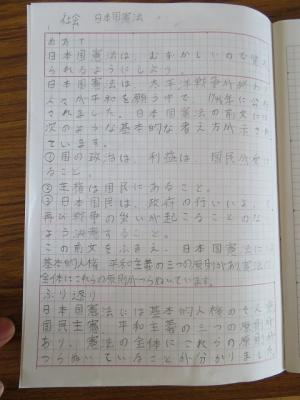 社会 日本国憲法
めあて
日本国憲法は、むずかしいので覚え
られるようにしよう。
日本国憲法は、太平洋戦争が終わり
人々が平和を願う中で、1946年に公布
されました。日本国憲法の前文には
次のような基本的な考え方が示され
ています。
①国の政治は、利益は、国民が受け
ること。
②主権は国民にあること。
③日本国民は、政府の行いによって
再び戦争の災いが起こることのな
いよう決意すること。
この前文をふまえ、日本国憲法には
基本的人権 平和主義の三つの原則があり憲法の
全体にこれらの原則がつらぬいています。
ふり返り
日本国憲法には基本的人権のそん重
国民主権、平和主義の三つの原則が
あり、憲法の全体にこれらの原則が
つらぬいていることが分かりました